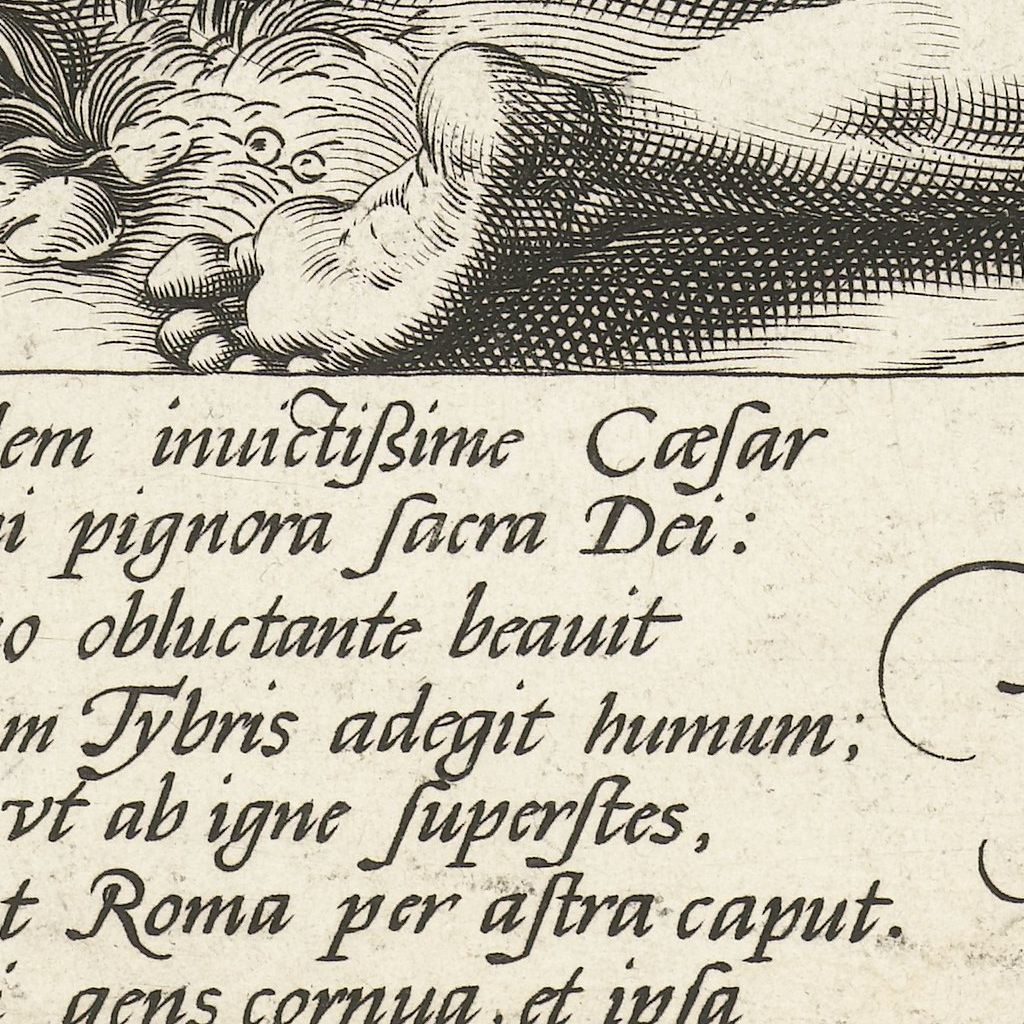 dem inuictißime Cæſar
i pignora ſacra Dei:
o obluctante beauit
m Tybris adegit humum;
vt ab igne ſuperſtes,
t Roma per aſtra caput.
gens cornua, et ipſa